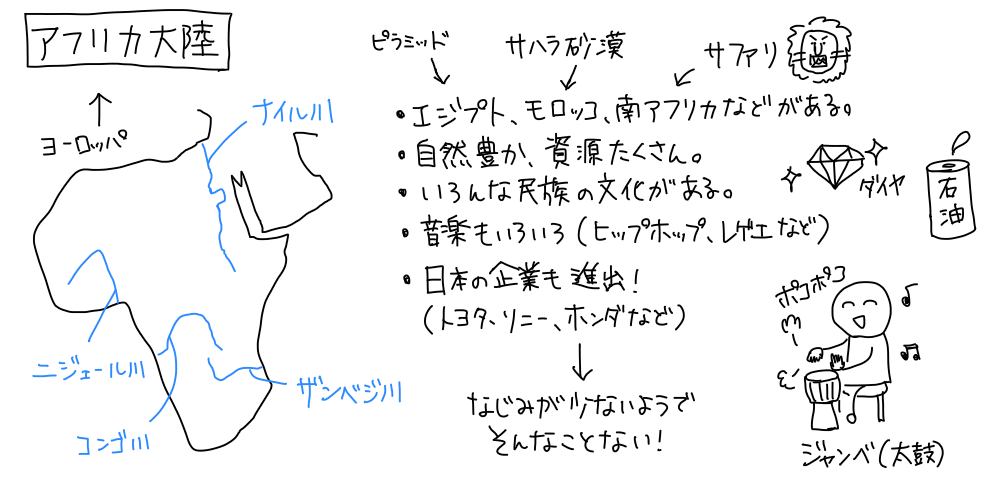 アフリカ大陸
ヨーロッパ
ナイル川
ニジェール川
コンゴ川
ザンベジ川
ピラミッド
サハラ砂漠
サファリ
・エジプト、モロッコ、南アフリカなどがある。
・自然豊か、資源たくさん。
・いろんな民族の文化がある。
・音楽もいろいろ(ヒップホップ、レゲエなど)
・日本の企業も進出!
(トヨタ、ソニー、ホンダなど)
なじみが少ないようで
そんなことない!
ダイヤ
石油
ポコポコ
ジャンベ(太鼓)